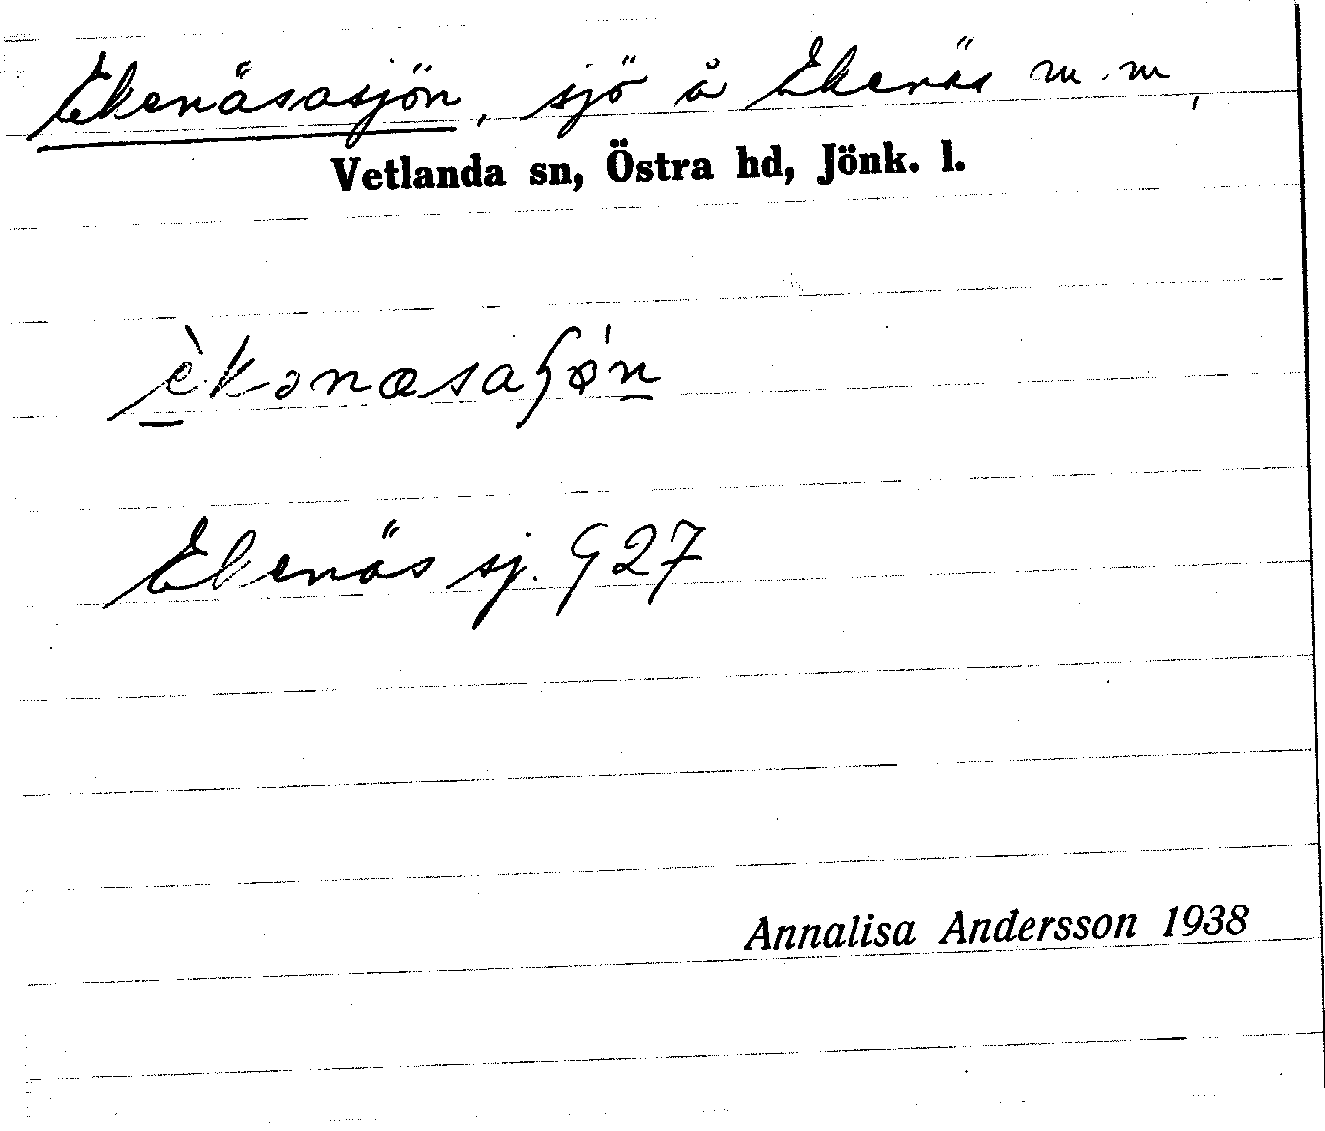 Ekenäsasjön, sjö å Ekenäs m.m,
Vetlanda sn, Östra hd, Jönk. l.
èkənæsaʃǿn
Ekenäs sj. G27
Annalisa Andersson 1938